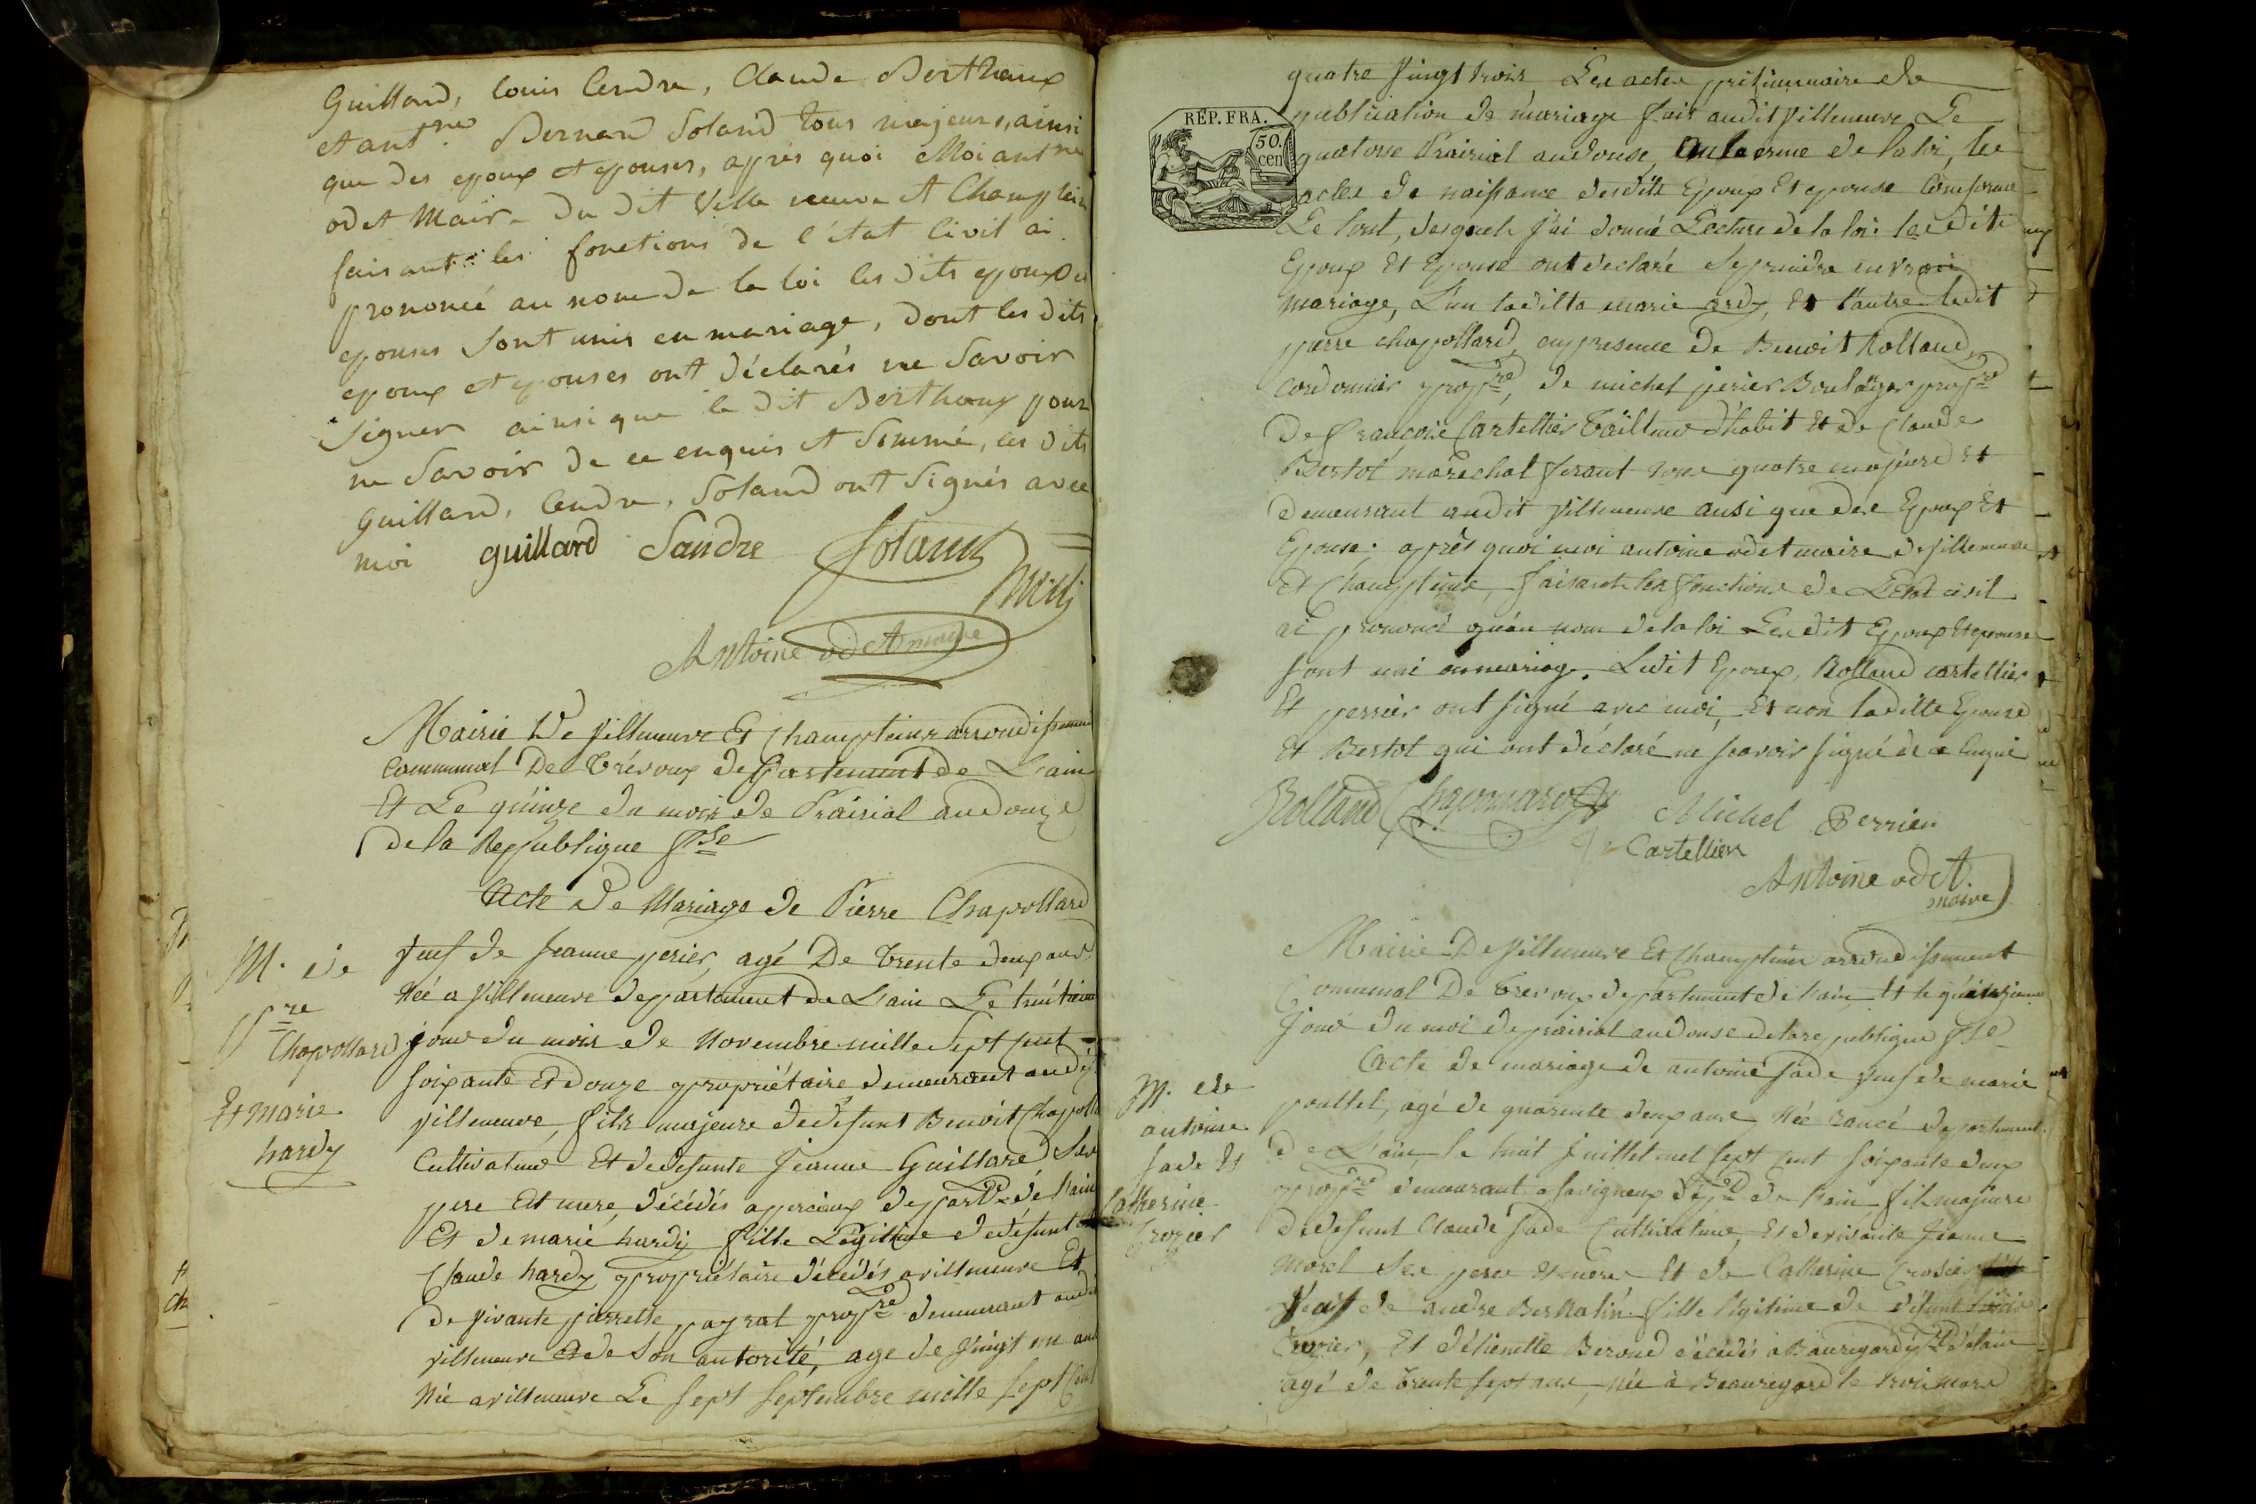 Guillard, louis Cendre, Claude Berthoux
et antne. Bernard Soland tous majeurs, ainsi
que des epoux et epouses, après quoi Moi antne
odet Maire du dit Ville neuve et Champtein
faisant les fonctions de l'état Civil ai
prononcé au nom de la loi les dits epoux et
epouses sont unis en mariage, dont les dits
epoux et epouses ont déclarés ne savoir
signer ainsi que le dit Berthoux pour
ne savoir de ce enquis et sommé, les dits
Guillard, Cendre, Soland ont signés avec
moi guillard Sandre Soland
Antoine odet maire
Mairie De Villeneuve Et Champteins arrondissement
Communal De Trévoux Departement de L'ain
Et Le quinze du mois de Prairial an douze
de la Republique fse
Acte de Mariage de Pierre Chapollard
M. de
Pre
Chapollard
Et marie
hardy
veuf de Jeanne perier, agé De trente deux ans
Née a Villeneuve departement de L'ain Le huitieme
jour du mois de Novembre mille Sept Cent
soixante et douze propriétaire demeurant audit
villeneuve, fils majeure de defunt Benoit Chapolla
Cultivateur Et de defunte Jeanne Guillard Ses
pere Et mere, décédés a percieux depart de L'ain
Et de marie hardy fille Légitime de défunt
Claude hardy propriétaire décédés a villeneuve Et
de vivante pierrette payrat propre demeurant audit
villeneuve de Son autorité, age de vingt un ans
Née a villeneuve Le sept septembre mille sept Cent
RÉP. FRA.
50.
cen
quatre vingt trois, Les actes préliminaire de
publication de mariage fait audit villeneuve Le
quatorse Prairial an douse, au terme de la loi, les
actes de naissance desdits Epoux Et epouse Conforme
Le tout, desquels j'ai donné Lecture de la loi lesdits
Epoux Et Epouse ont déclaré Se prendre en vrai
mariage, L'un laditte marie ardy, Et l'autre ledit
pierre chapollard, en presence de Benoit Rolland
cordonnier propre, de michel perier Boulanger propre
De françois Cartellier Tailleur d'habit Et de Claude
Bertot maréchal ferant tous quatre majeure Et
demeurant audit villeneuve ausi que des Epoux Et
Epouse. après quoi moi antoine odet maire de villeneuve
Et Champteins, faisant les fonctions de L'Etat civil
ai prononcé qu'au nom de la loi Lesdit Epoux Et epouse
sont uni en mariage. Ledit Epoux, Rolland cartellier
Et perrier ont signé avec moi, Et non laditte Epouse
Et Bertot qui ont déclaré ne scavoir signé de ce Enquis
Rolland Chapollard Michel Perrier
Cartellier
Antoine odet
maire
Mairie De Villeneuve Et Champteins arrondissement
Communal De Trevoux departement de L'ain, Et le quinzieme
Jour du moi de prairial an douse de la republique fse
Acte de mariage de antoine sade veuf de marie
M. de
antoine
Sade Et
Catherine
Crozier
poullet, agé de quarente deux ans Née Rancé departement
de L'ain, le huit Juillet mil sept cent soixante deux
propre demeurant a Savigneux depd de L'ain fils majeure
de defunt Claude Sade Cultivateur, Et de vivante Jeanne
Morel Ses pere et mere Et de Catherine Crosier
Veuf de andre Berthalin fille legitime de défunt
Crosier, Et d'étienette Beroud décédés a Beauregard dpt de L'ain
agé de trente sept ans, née à Beauregard le trois mars